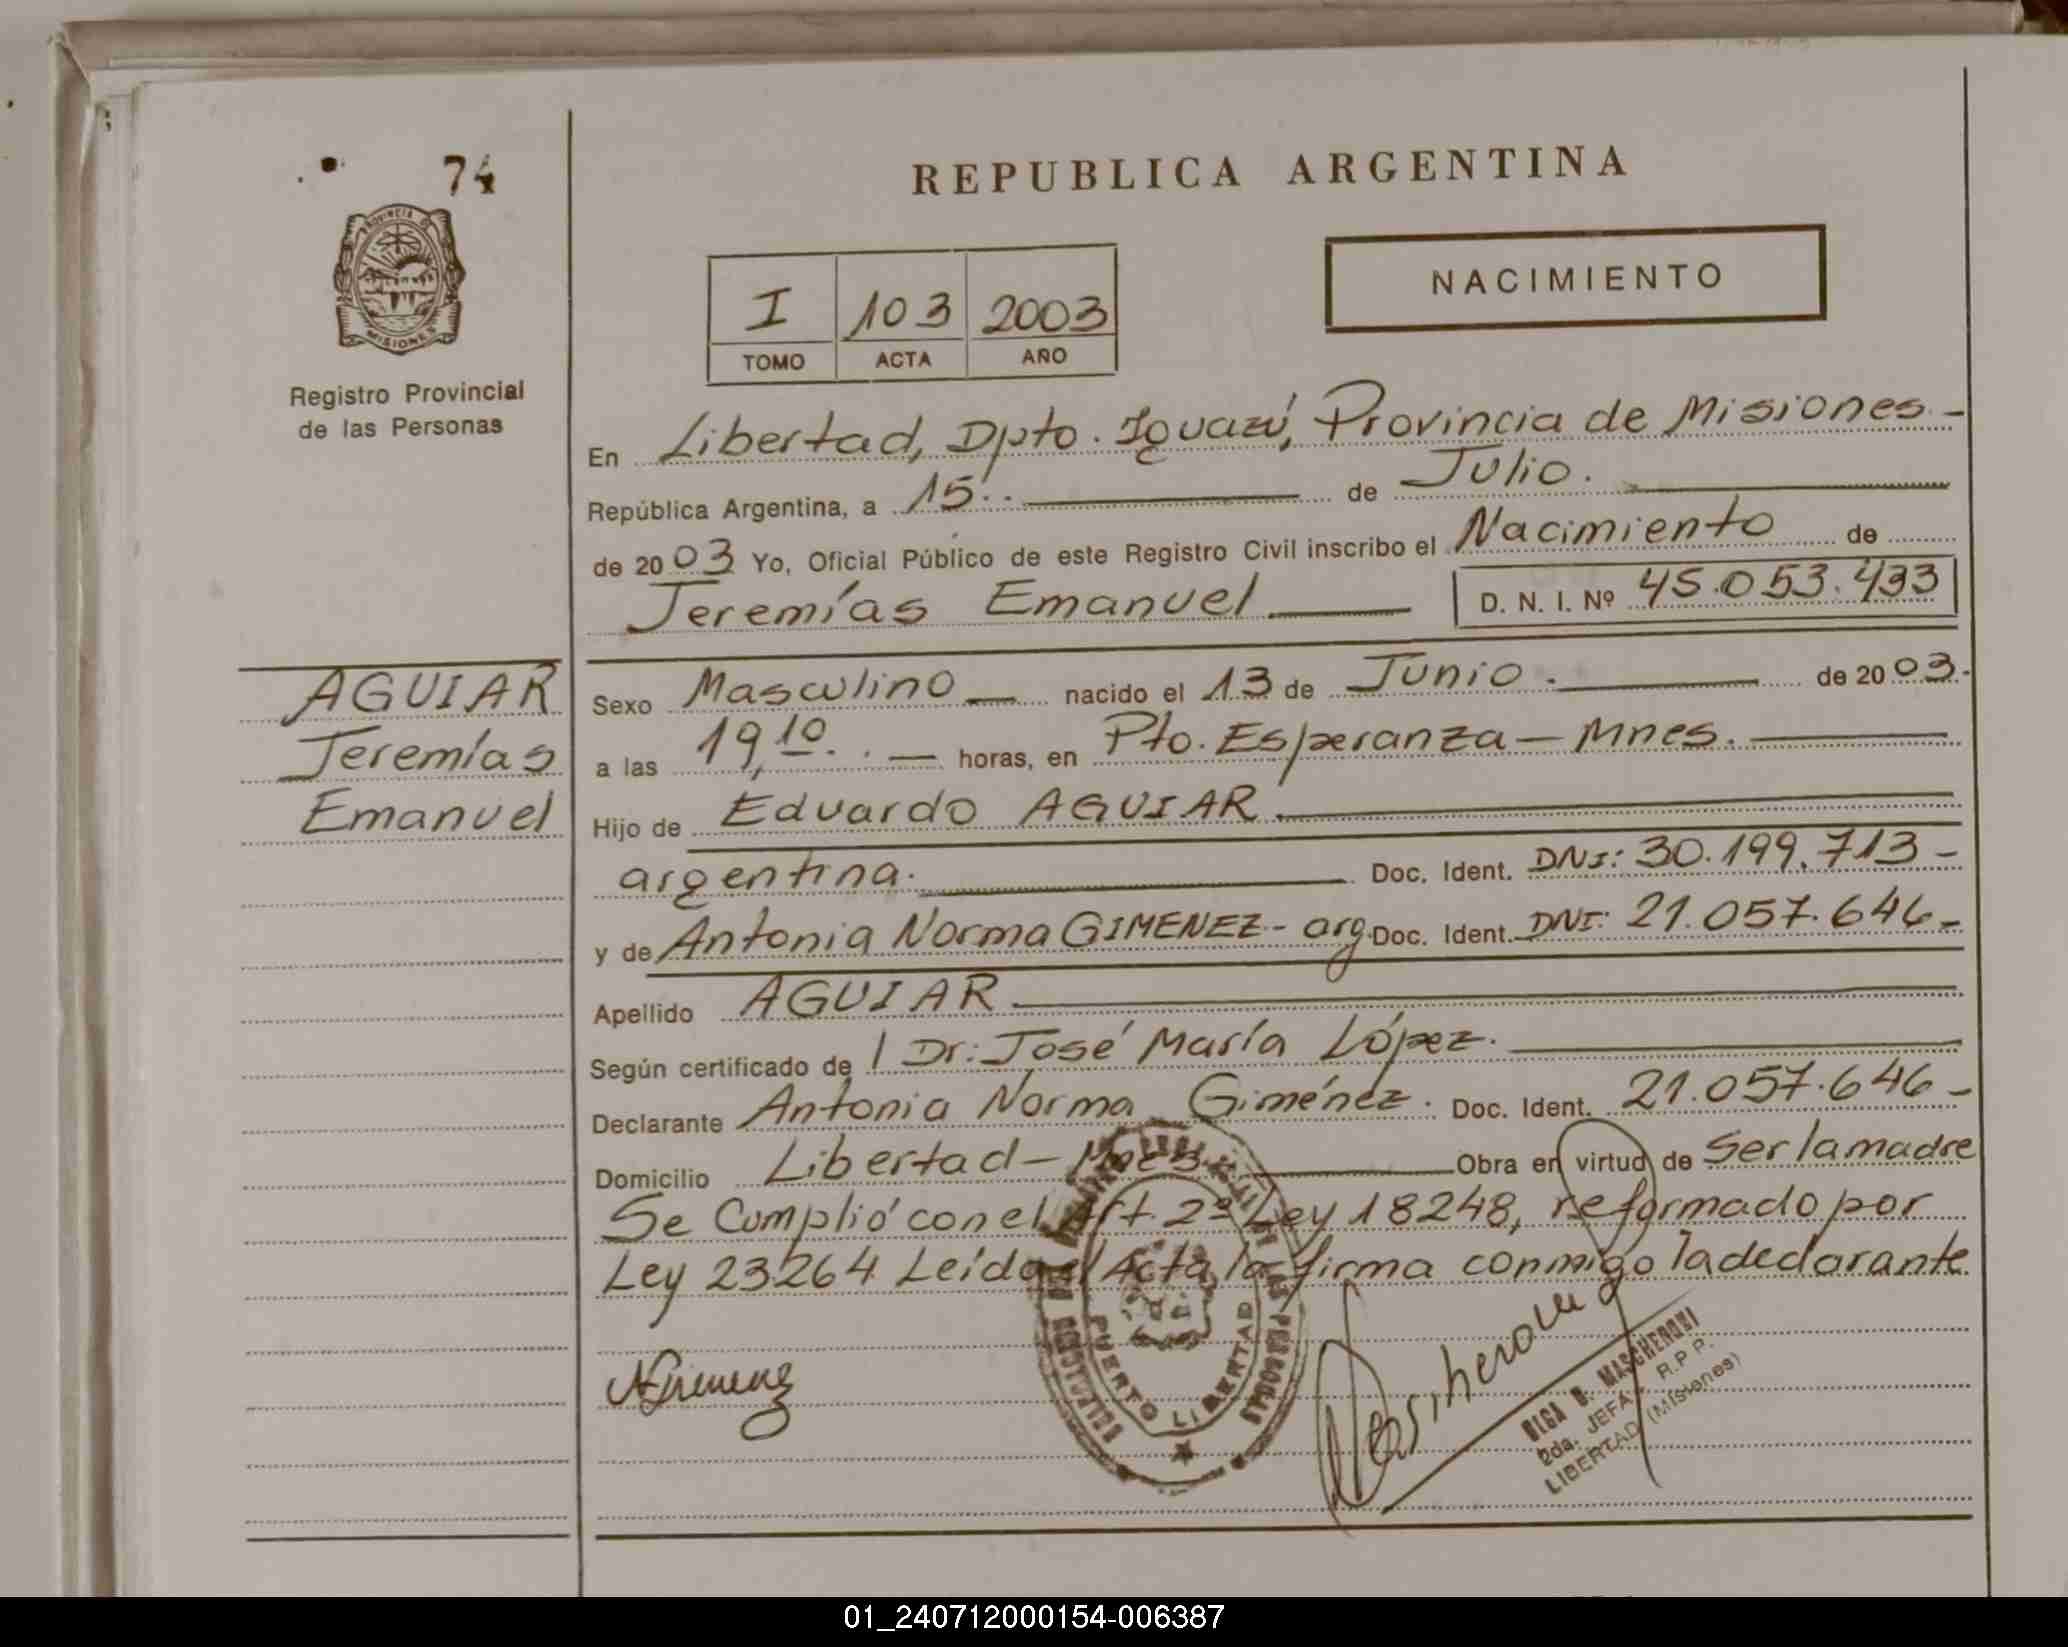 74
REPUBLICA ARGENTINA
PROVINCIA DE
MISIONES
Registro Provincial
de las Personas
I 103 2003
TOMO ACTA AÑO
NACIMIENTO
En Libertad, Dpto. Iguazú, Provincia de Misiones.-
República Argentina, a 15.. de Julio.
de 2003 Yo, Oficial Público de este Registro Civil inscribo el Nacimiento de
Jeremías Emanuel D. N. I. Nº 45.053.433
AGUIAR
Jeremías
Emanuel
Sexo Masculino nacido el 13 de Junio. de 2003.-
a las 19,10. horas, en Pto. Esperanza - Mnes.
Hijo de Eduardo AGUIAR
argentina. Doc. Ident. DNI: 30.199.713-
y de Antonia Norma GIMENEZ- arg. Doc. Ident. DNI: 21.057.646-
Apellido AGUIAR
Según certificado de l Dr: José María López.
Declarante Antonia Norma Giménez. Doc. Ident. 21.057.646-
Domicilio Libertad - Mnes. Obra en virtud de Ser la madre
Se Cumplió con el Art. 2º Ley 18248, reformado por
Ley 23264 Leída el Acta, la firma conmigo la declarante
NGimenez
PUERTO LIBERTAD
OLGA B. MASCHERONI
2da. JEFA R.P.P.
LIBERTAD (Misiones)
01_240712000154-006387